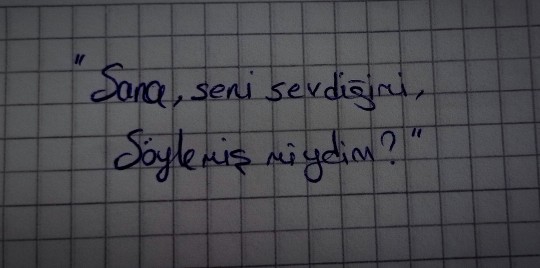 "Sana, seni sevdiğimi,
Söylemiş miydim?"